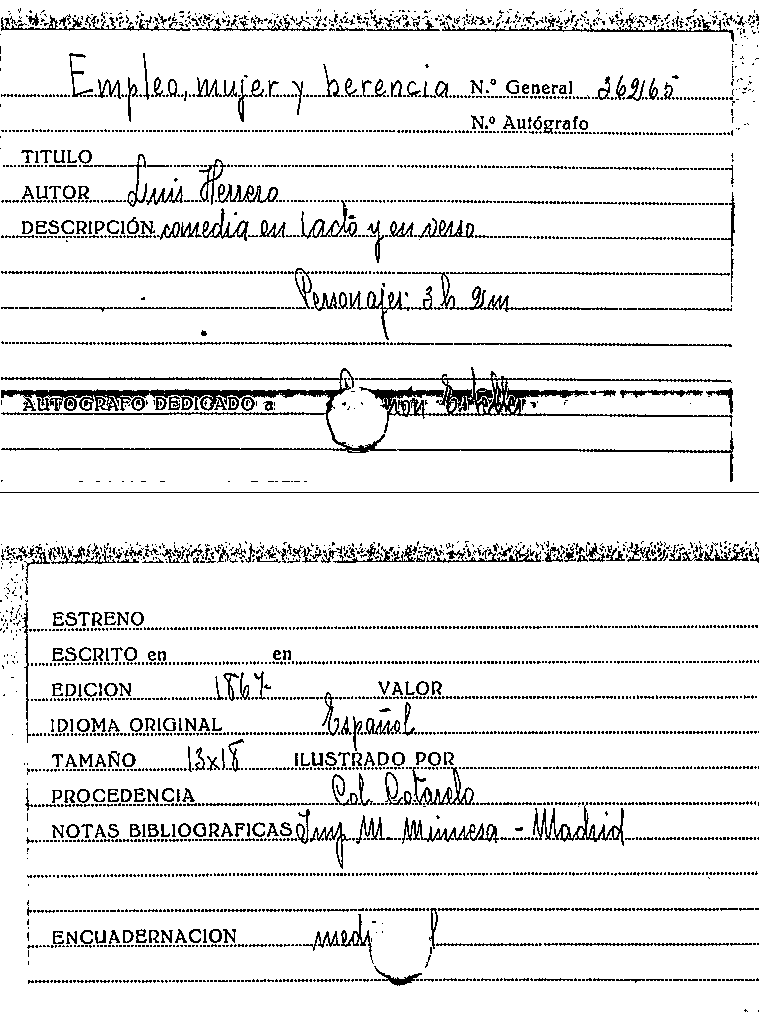 Empleo, mujer y herencia N.º General 369165
N.º Autógrafo
TITULO
AUTOR Luis Herrero
DESCRIPCIÓN comedia en 1 acto y en verso
Personajes: 3 h 2 m
AUTOGRAFO DEDICADO a
ESTRENO
ESCRITO en en
EDICION 1867 VALOR
IDIOMA ORIGINAL Español
TAMAÑO 13x18 ILUSTRADO POR
PROCEDENCIA Col. Cotarelo
NOTAS BIBLIOGRAFICAS Imp. M. Minuesa - Madrid
ENCUADERNACION